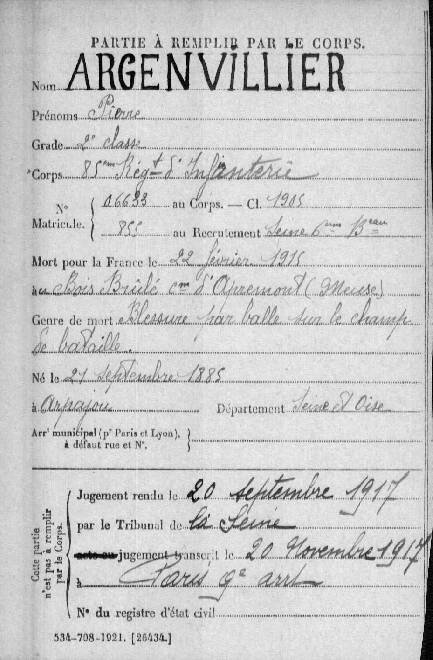 PARTIE À REMPLIR PAR LE CORPS.
Nom ARGENVILLIER
Prénoms Pierre
Grade 2e classe
Corps 85ème Régt d'Infanterie
No 06633 au Corps. — Cl. 1905
Matricule. 855 au Recrutement Seine 6ème Beau
Mort pour la France le 22 février 1915
au Bois Brûlé cne d'Apremont (Meuse)
Genre de mort Blessure par balle sur le champ
de bataille.
Né le 21 septembre 1885
à Arpajon Département Seine et Oise
Arrt municipal (pr Paris et Lyon),
à défaut rue et No.
Cette partie
n'est pas à remplir
par le Corps.
Jugement rendu le 20 septembre 1917
par le Tribunal de la Seine
acte ou jugement transcrit le 20 Novembre 1917
à Paris 9e arrt
No du registre d'état civil
534-708-1921. [26434.]